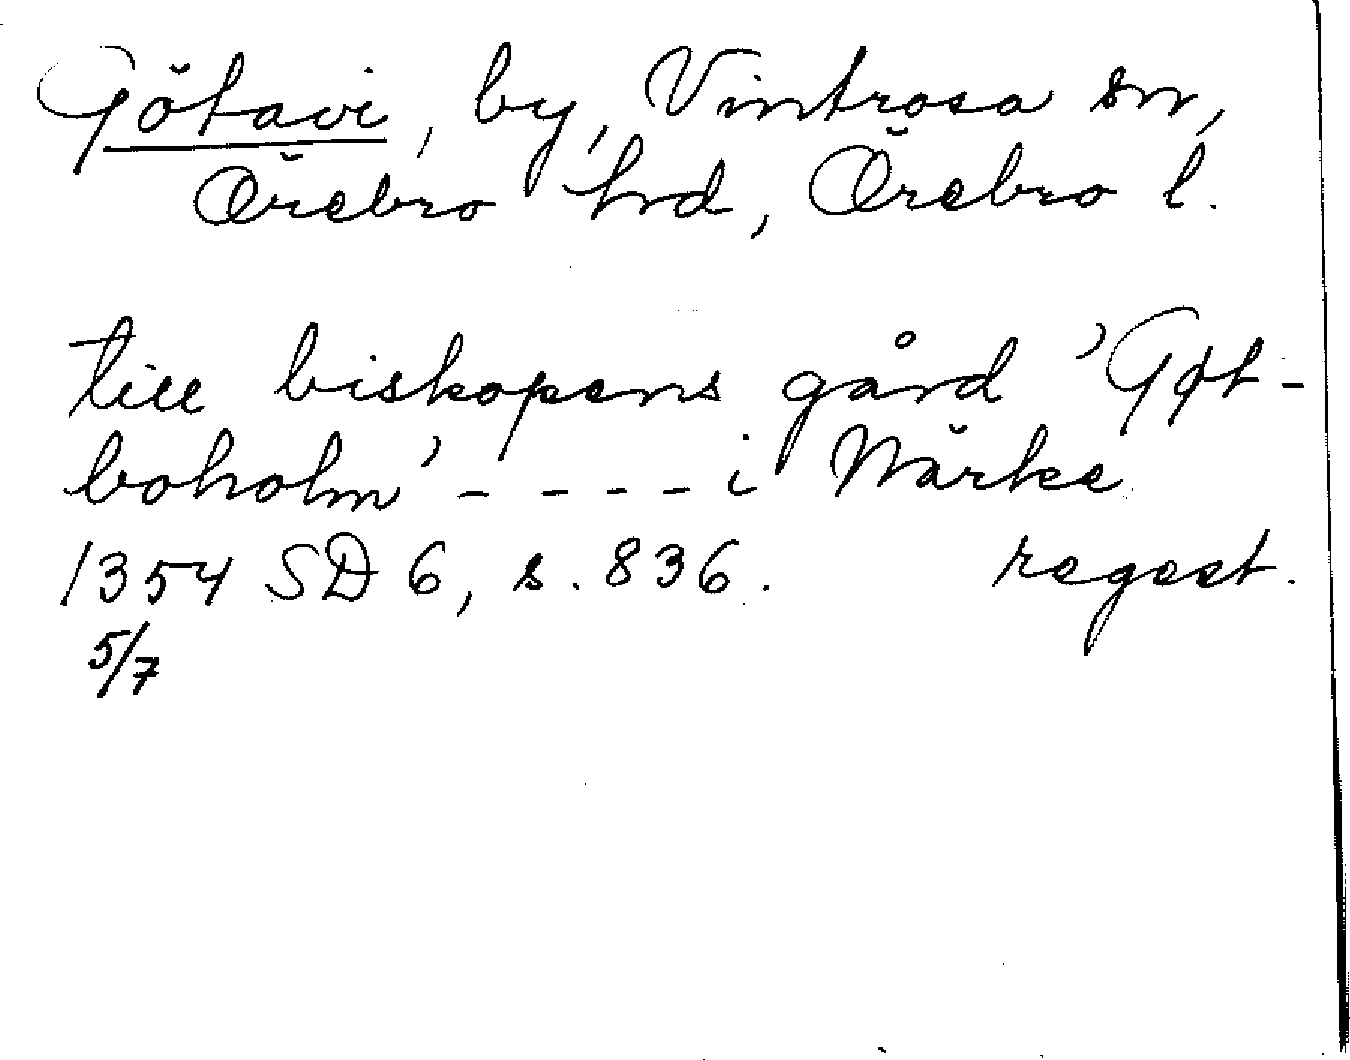 Götavi, by, Vintrosa sn,
Örebro hrd, Örebro l.
till biskopens gård 'Gøt-
boholm' - - - - i Närke
1354 SD 6, s. 836. regest.
5/7